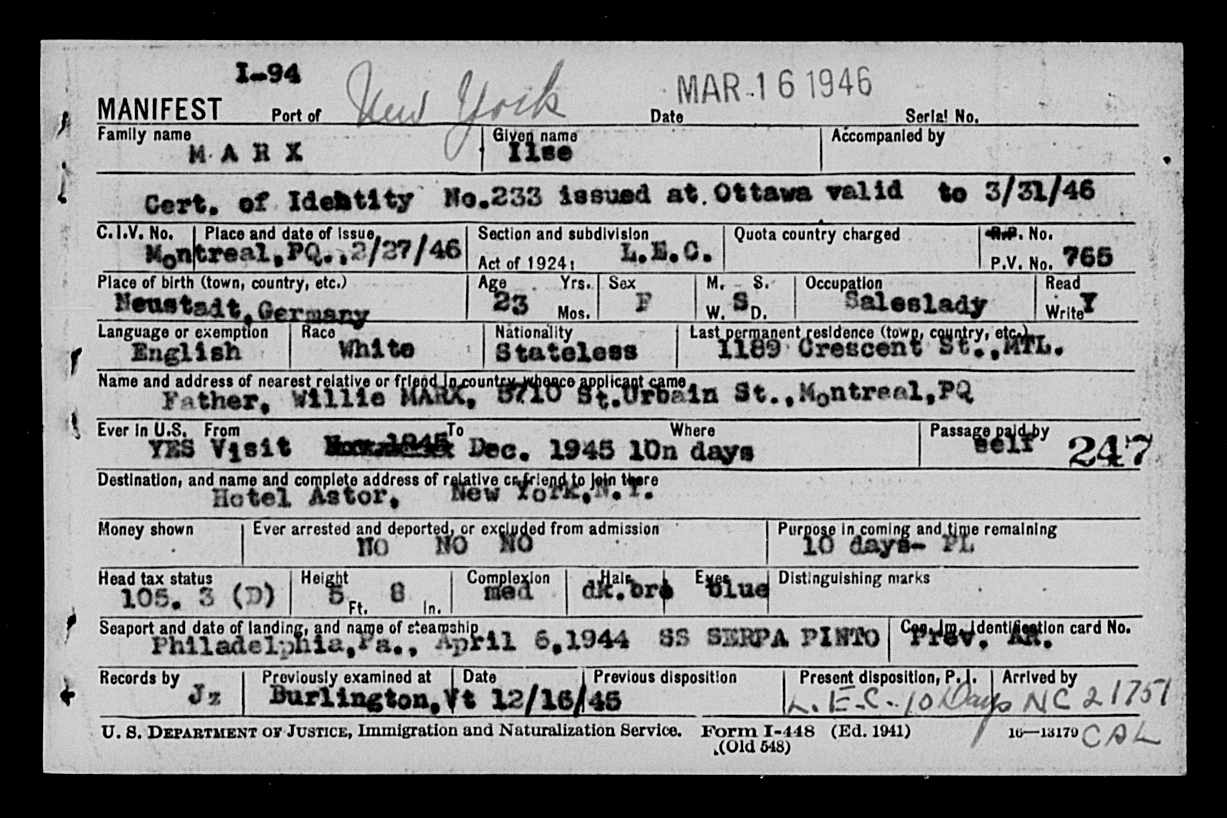 I-94
MANIFEST Port of New York Date MAR 16 1946 Serial No.
Family name Given name Accompanied by
MARX Ilse
Cert. of Identity No.233 issued at Ottawa valid to 3/31/46
C.I.V. No. Place and date of issue Section and subdivision Quota country charged R.P. No.
Montreal,PQ.,2/27/46 Act of 1924: L.E.C. P.V. No. 765
Place of birth (town, country, etc.) Age Yrs. Sex M. S. Occupation Read
Neustadt,Germany 23 Mos. F W. S D. Saleslady Write Y
Language or exemption Race Nationality Last permanent residence (town, country, etc.)
English White Stateless 1189 Crescent St.,MTL.
Name and address of nearest relative or friend in country whence applicant came
Father, Willie MARX, 5710 St.Urbain St.,Montreal,PQ
Ever in U.S. From To Where Passage paid by
YES Visit Dec. 1945 10n days self 247
Destination, and name and complete address of relative or friend to join there
Hotel Astor, New York,N.Y.
Money shown Ever arrested and deported, or excluded from admission Purpose in coming and time remaining
NO NO NO 10 days- PL
Head tax status Height Complexion Hair Eyes Distinguishing marks
105. 3 (D) 5 Ft. 8 In. med dk.bro blue
Seaport and date of landing, and name of steamship Can. Im. Identification card No.
Philadelphia,Pa., April 6,1944 SS SERPA PINTO Prev. AR.
Records by Previously examined at Date Previous disposition Present disposition, P.I. Arrived by
Jz Burlington,Vt 12/16/45 L.E.C. 10 Days NC 21751
U. S. DEPARTMENT OF JUSTICE, Immigration and Naturalization Service. Form I-448 (Ed. 1941) 16—13179 CAL
(Old 548)